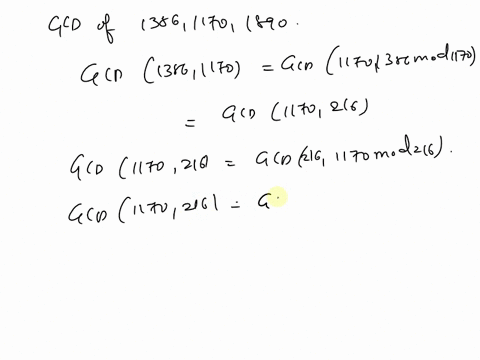 GCD of 1386, 1170, 1890.
GCD (1386, 1170) = GCD (1170, 1386 mod 1170)
= GCD (1170, 216)
GCD (1170, 216) = GCD (216, 1170 mod 216).
GCD (1170, 216) = G